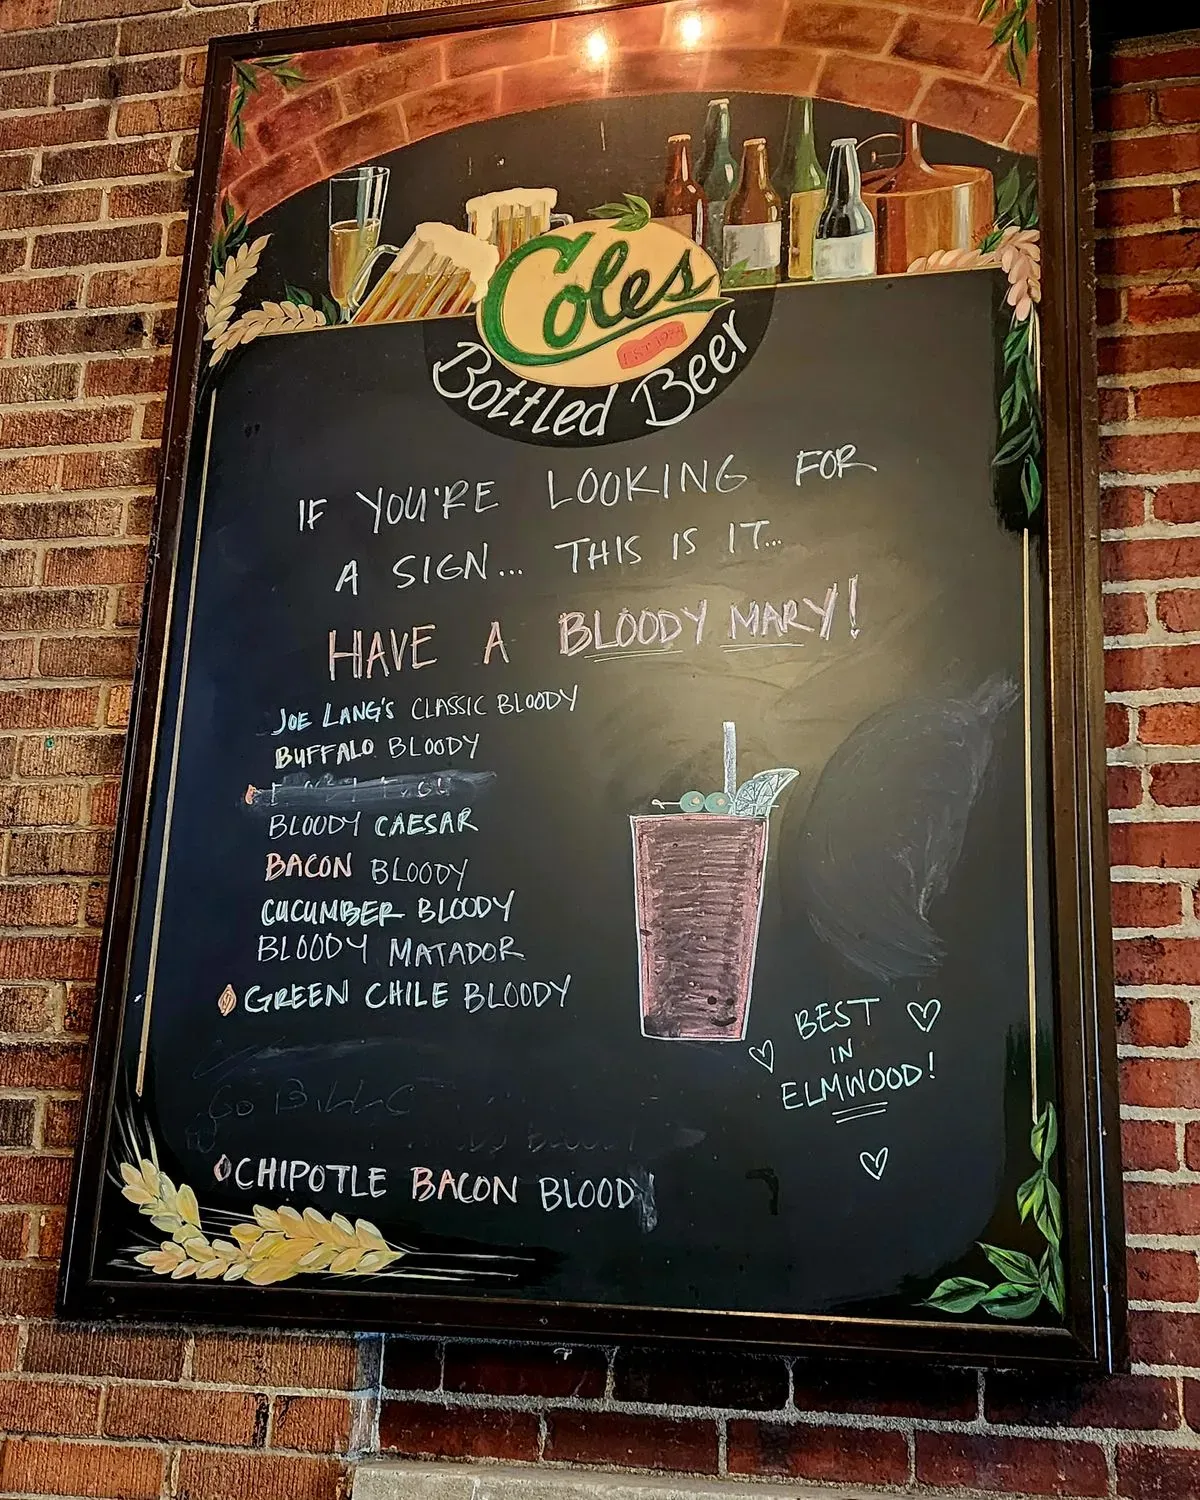 Coles
EST 1934
Bottled Beer
IF YOU'RE LOOKING FOR
A SIGN... THIS IS IT...
HAVE A BLOODY MARY!
JOE LANG'S CLASSIC BLOODY
BUFFALO BLOODY
BLOODY CAESAR
BACON BLOODY
CUCUMBER BLOODY
BLOODY MATADOR
GREEN CHILE BLOODY
GO BILLS
CHIPOTLE BACON BLOODY
BEST
IN
ELMWOOD!